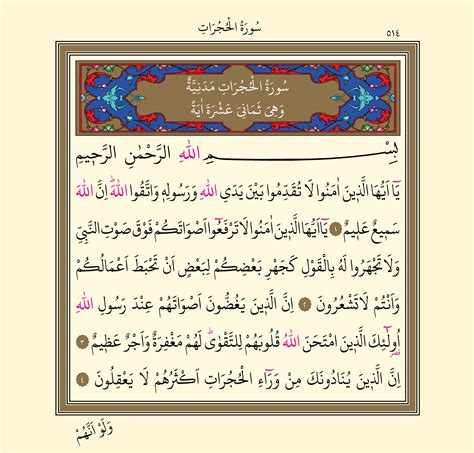 سُورَةُ الْحُجُرَاتِ
٥١٤
سُورَةُ الْحُجُرَاتِ مَدَنِيَّةٌ
وَهِيَ ثَمَانِيَ عَشْرَةَ اٰيَةً
بِسْمِ اللّٰهِ الرَّحْمٰنِ الرَّحِيمِ
يَٓا اَيُّهَا الَّذِينَ اٰمَنُوا لَا تُقَدِّمُوا بَيْنَ يَدَيِ اللّٰهِ وَرَسُولِهِ وَاتَّقُوا اللّٰهَۜ اِنَّ اللّٰهَ
سَمِيعٌ عَلِيمٌ ١ يَٓا اَيُّهَا الَّذِينَ اٰمَنُوا لَا تَرْفَعُٓوا اَصْوَاتَكُمْ فَوْقَ صَوْتِ النَّبِيِّ
وَلَا تَجْهَرُوا لَهُ بِالْقَوْلِ كَجَهْرِ بَعْضِكُمْ لِبَعْضٍ اَنْ تَحْبَطَ اَعْمَالُكُمْ
وَاَنْتُمْ لَا تَشْعُرُونَ ٢ اِنَّ الَّذِينَ يَغُضُّونَ اَصْوَاتَهُمْ عِنْدَ رَسُولِ اللّٰهِ
اُو۬لٰٓئِكَ الَّذِينَ امْتَحَنَ اللّٰهُ قُلُوبَهُمْ لِلتَّقْوٰىۜ لَهُمْ مَغْفِرَةٌ وَاَجْرٌ عَظِيمٌ ٣
اِنَّ الَّذِينَ يُنَادُونَكَ مِنْ وَرَٓاءِ الْحُجُرَاتِ اَكْثَرُهُمْ لَا يَعْقِلُونَ ٤
وَلَوْ اَنَّهُمْ